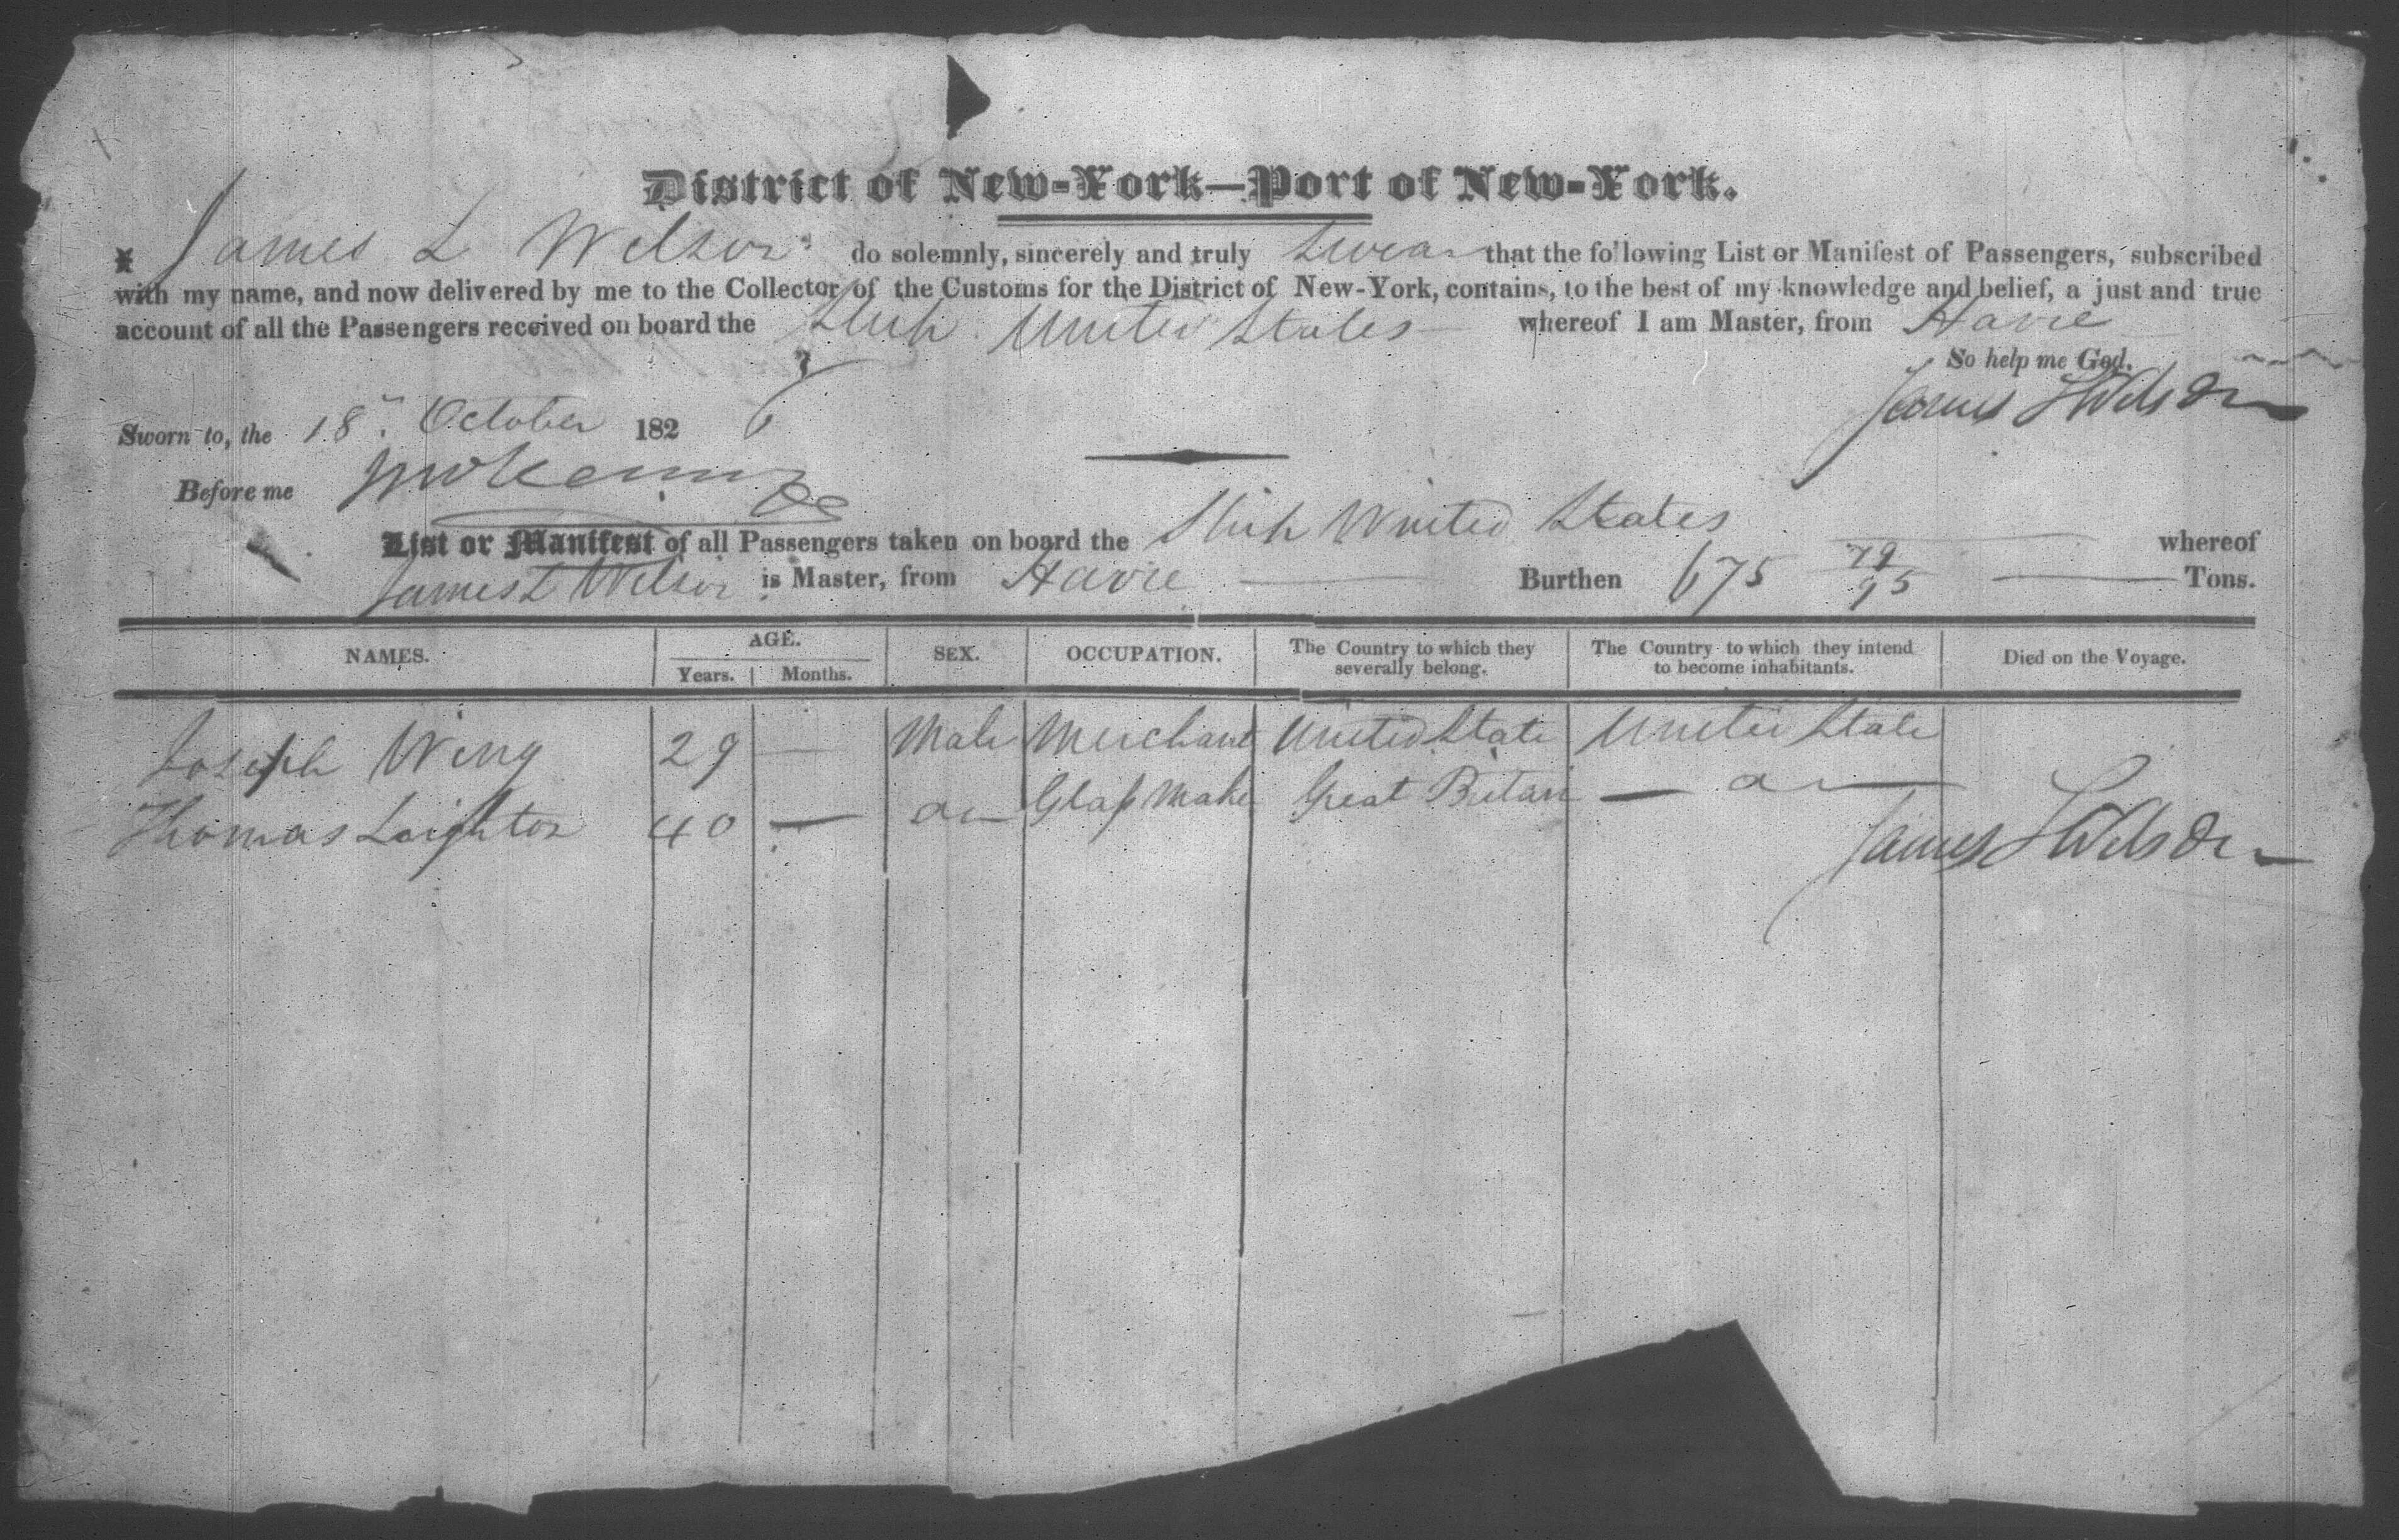 District of New-York—Port of New-York.
I James L Wilson do solemnly, sincerely and truly swear that the following List or Manifest of Passengers, subscribed
with my name, and now delivered by me to the Collector of the Customs for the District of New-York, contains, to the best of my knowledge and belief, a just and true
account of all the Passengers received on board the Ship United States whereof I am Master, from Havre
So help me God.
James L Wilson
Sworn to, the 18th October 1826
Before me
List or Manifest of all Passengers taken on board the Ship United States whereof
James L Wilson is Master, from Havre — Burthen 675 79/95 — Tons.
NAMES. AGE. Years. Months. SEX. OCCUPATION. The Country to which they severally belong. The Country to which they intend to become inhabitants. Died on the Voyage.
Joseph Wing 29 — Male Merchant United State United State
Thomas Leighton 40 — do Glass Maker Great Britain — do —
James L Wilson